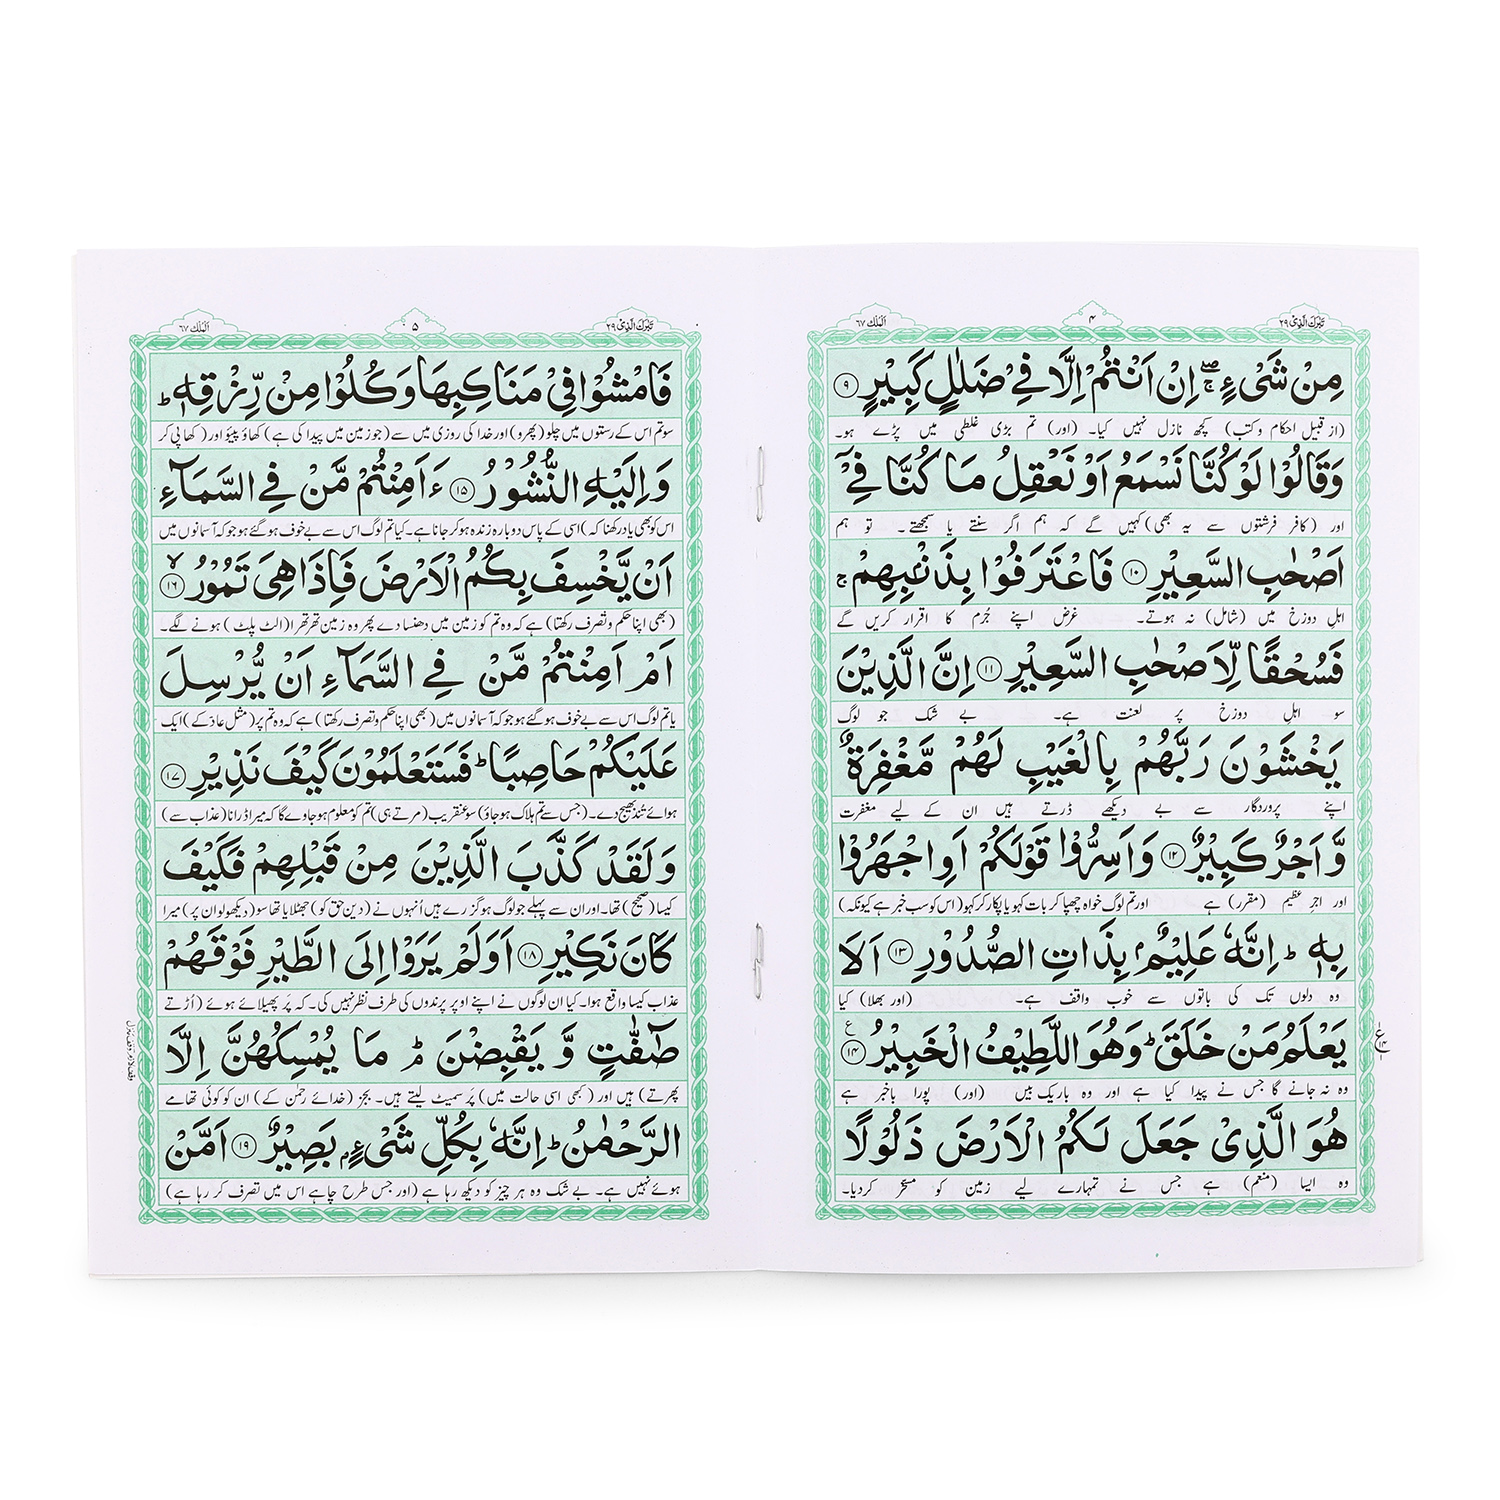 تبٰرک الذی ۲۹
۴
الملك ۶۷
مِنْ شَیْءٍ ۖۚ اِنْ اَنْتُمْ اِلَّا فِیْ ضَلٰلٍ كَبِیْرٍ ۹
(از قبیل احکام و کتب) کچھ نازل نہیں کیا۔ (اور) تم بڑی غلطی میں پڑے ہو۔
وَقَالُوْا لَوْ كُنَّا نَسْمَعُ اَوْ نَعْقِلُ مَا كُنَّا فِیْۤ
اور (کافر فرشتوں سے یہ بھی) کہیں گے کہ ہم اگر سنتے یا سمجھتے۔ تو ہم
اَصْحٰبِ السَّعِیْرِ ۱۰ فَاعْتَرَفُوْا بِذَنْۢبِهِمْ ۚ
اہل دوزخ میں (شامل) نہ ہوتے۔ غرض اپنے جُرم کا اقرار کریں گے
فَسُحْقًا لِّاَصْحٰبِ السَّعِیْرِ ۱۱ اِنَّ الَّذِیْنَ
سو اہلِ دوزخ پر لعنت ہے۔ بے شک جو لوگ
یَخْشَوْنَ رَبَّهُمْ بِالْغَیْبِ لَهُمْ مَّغْفِرَةٌ
اپنے پروردگار سے بے دیکھے ڈرتے ہیں ان کے لیے مغفرت
وَّاَجْرٌ كَبِیْرٌ ۱۲ وَاَسِرُّوْا قَوْلَكُمْ اَوِ اجْهَرُوْا
اور اجرِ عظیم (مقرر) ہے اور تم لوگ خواہ چھپا کر بات کہو یا پکار کر کہو (اس کو سب خبر ہے کیونکہ)
بِهٖ ؕ اِنَّهٗ عَلِیْمٌۢ بِذَاتِ الصُّدُوْرِ ۱۳ اَلَا
وہ دلوں تک کی باتوں سے خوب واقف ہے۔ (اور بھلا) کیا
یَعْلَمُ مَنْ خَلَقَ ؕ وَهُوَ اللَّطِیْفُ الْخَبِیْرُ ۱۴
وہ نہ جانے گا جس نے پیدا کیا ہے اور وہ باریک بیں (اور) پورا باخبر ہے
هُوَ الَّذِیْ جَعَلَ لَكُمُ الْاَرْضَ ذَلُوْلًا
وہ ایسا (منعم) ہے جس نے تمہارے لیے زمین کو مسخر کردیا۔
تبٰرک الذی ۲۹
۵
الملك ۶۷
فَامْشُوْا فِیْ مَنَاكِبِهَا وَكُلُوْا مِنْ رِّزْقِهٖ ؕ
سو تم اس کے رستوں میں چلو (پھرو) اور خدا کی روزی میں سے (جو زمین میں پیدا کی ہے) کھاؤ پیئو اور (کھا پی کر
وَاِلَیْهِ النُّشُوْرُ ۱۵ ءَاَمِنْتُمْ مَّنْ فِی السَّمَآءِ
اس کو بھی یاد رکھنا کہ) اسی کے پاس دوبارہ زندہ ہو کر جانا ہے۔ کیا تم لوگ اس سے بے خوف ہو گئے ہو جو کہ آسمانوں میں
اَنْ یَّخْسِفَ بِكُمُ الْاَرْضَ فَاِذَا هِیَ تَمُوْرُ ۱۶ۙ
(بھی اپنا حکم و تصرف رکھتا) ہے کہ وہ تم کو زمین میں دھنسا دے پھر وہ زمین تھرتھرا (الٹ پلٹ) ہونے لگے۔
اَمْ اَمِنْتُمْ مَّنْ فِی السَّمَآءِ اَنْ یُّرْسِلَ
یا تم لوگ اس سے بے خوف ہو گئے ہو جو کہ آسمانوں میں (بھی اپنا حکم و تصرف رکھتا) ہے کہ وہ تم پر (مثل عاد کے) ایک
عَلَیْكُمْ حَاصِبًا ؕ فَسَتَعْلَمُوْنَ كَیْفَ نَذِیْرِ ۱۷
ہوائے تند بھیج دے۔ (جس سے تم ہلاک ہو جاؤ) سو عنقریب (مرتے ہی) تم کو معلوم ہو جاوے گا کہ میرا ڈرانا (عذاب سے)
وَلَقَدْ كَذَّبَ الَّذِیْنَ مِنْ قَبْلِهِمْ فَكَیْفَ
کیسا (صحیح) تھا۔ اور ان سے پہلے جو لوگ ہو گزرے ہیں اُنہوں نے (دین حق کو) جھٹلایا تھا سو (دیکھو لو ان پر) میرا
كَانَ نَكِیْرِ ۱۸ اَوَلَمْ یَرَوْا اِلَی الطَّیْرِ فَوْقَهُمْ
عذاب کیسا واقع ہوا۔ کیا ان لوگوں نے اپنے اوپر پرندوں کی طرف نظر نہیں کی۔ کہ پَر پھیلائے ہوئے (اُڑتے
صٰٓفّٰتٍ وَّیَقْبِضْنَ ؔۘؕ مَا یُمْسِكُهُنَّ اِلَّا
پھرتے) ہیں اور (کبھی اسی حالت میں) پَر سمیٹ لیتے ہیں۔ بجز (خدائے رحمٰن کے) ان کو کوئی تھامے
الرَّحْمٰنُ ؕ اِنَّهٗ بِكُلِّ شَیْءٍۭ بَصِیْرٌ ۱۹ اَمَّنْ
ہوئے نہیں ہے۔ بے شک وہ ہر چیز کو دیکھ رہا ہے (اور جس طرح چاہے اس میں تصرف کر رہا ہے)